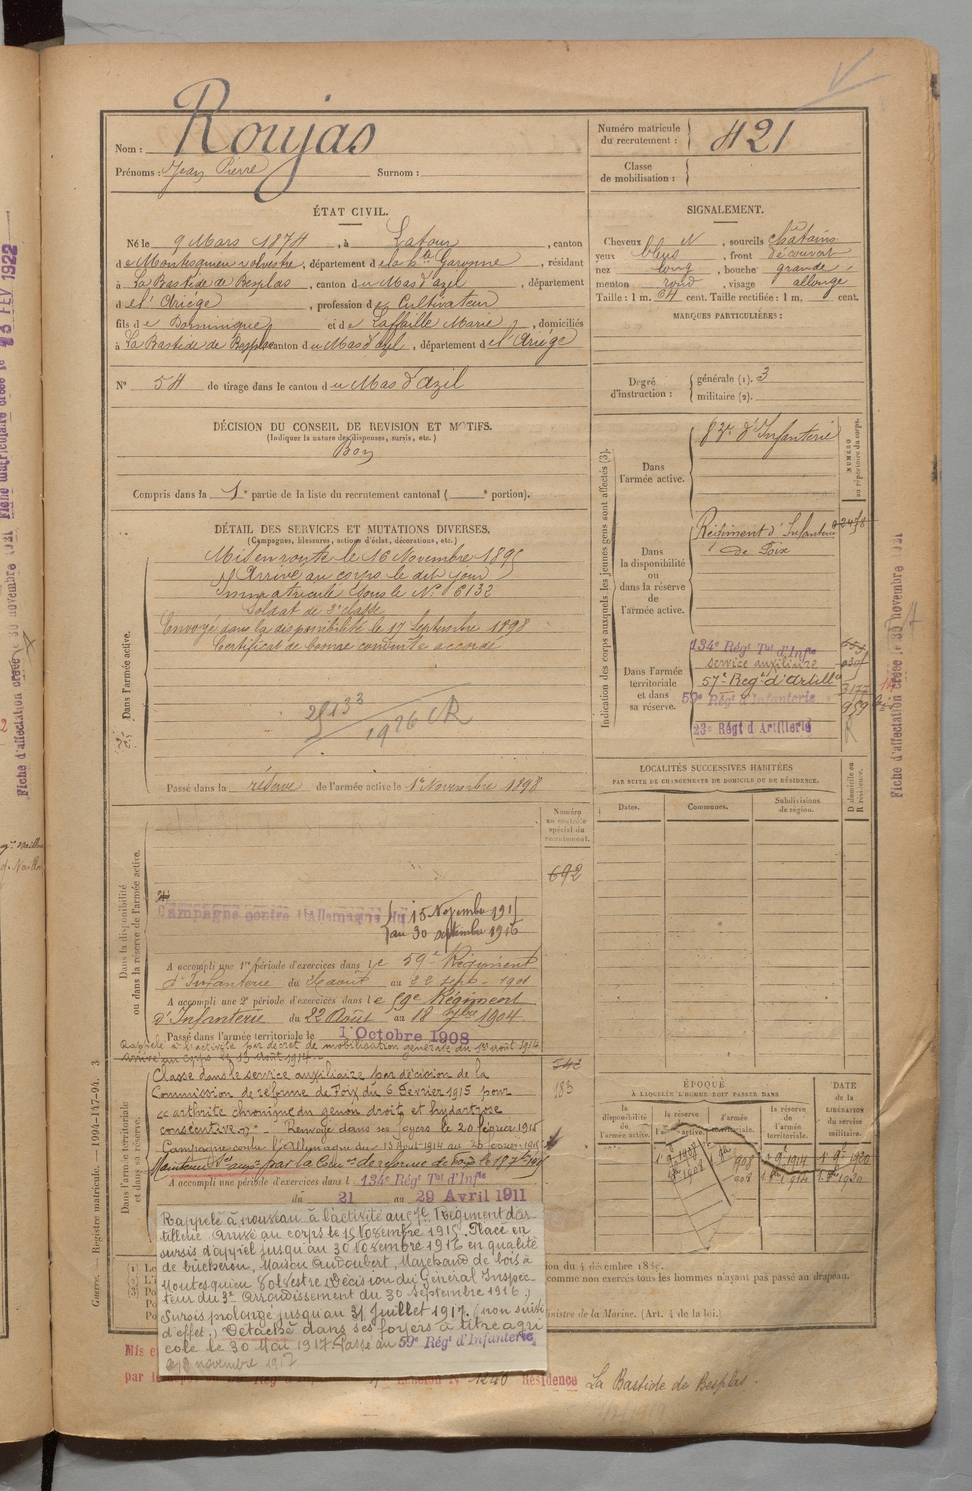 Nom : Roujas
Prénoms : Jean Pierre Surnom :
Numéro matricule du recrutement : 421
Classe de mobilisation :
ÉTAT CIVIL.
Né le 9 Mars 1874, à Lafour, canton
de Montesquieu volvestre, département de la hte Garonne, résidant
à La Bastide de Besplas, canton du Mas d'azil, département
de l'Ariége, profession de Cultivateur
fils de Dominique et de Laffaille Marie, domiciliés
à La Bastide de Besplas canton du Mas d'azil, département de l'Ariége
N° 54 de tirage dans le canton du Mas d'Azil
SIGNALEMENT.
Cheveux et N, sourcils châtains
yeux bleus, front découvert
nez long, bouche grande
menton rond, visage allongé
Taille : 1 m. 64 cent. Taille rectifiée : 1 m. cent.
MARQUES PARTICULIÈRES :
Degré d'instruction : générale (1). 3
militaire (2).
DÉCISION DU CONSEIL DE REVISION ET MOTIFS.
(Indiquer la nature des dispenses, sursis, etc.)
Bon
Compris dans la 1e partie de la liste du recrutement cantonal ( e portion).
DÉTAIL DES SERVICES ET MUTATIONS DIVERSES.
(Campagnes, blessures, actions d'éclat, décorations, etc.)
Dans l'armée active.
Mis en route le 16 Novembre 1895
Arrivé au corps le dit jour
Immatriculé sous le N° 6132
Soldat de 2e classe
Envoyé dans la disponibilité le 17 Septembre 1898
Certificat de bonne conduite accordé
Passé dans la réserve de l'armée active le 1er Novembre 1898
Indication des corps auxquels les jeunes gens sont affectés (3).
NUMÉRO au répertoire du corps.
Dans l'armée active.
d'Infanterie
Dans la disponibilité ou dans la réserve de l'armée active.
Régiment d'Infanterie
de Foix
Dans l'armée territoriale et dans sa réserve.
134e Régt Tal d'Infie
service auxiliaire
57e Regt d'Artille
59e Régt d'Infanterie
23e Régt d'Artillerie
LOCALITÉS SUCCESSIVES HABITÉES
PAR SUITE DE CHANGEMENTS DE DOMICILE OU DE RÉSIDENCE.
Dates. Communes. Subdivisions de région. D domicile ou R résidence.
Dans la disponibilité ou dans la réserve de l'armée active.
Numéro au contrôle spécial du recrutement.
692
Campagne contre l'Allemagne du 15 Novembre 1915
au 30 septembre 1916
A accompli une 1re période d'exercices dans le 59e Régiment
d'Infanterie du 26 août au 22 sept. 1901
A accompli une 2e période d'exercices dans le 59e Régiment
d'Infanterie du 22 Août au 18 7bre 1904.
Passé dans l'armée territoriale le 1 Octobre 1908
Rappelé à l'activité par décret de mobilisation générale du 1er août 1914
Arrivé au corps le 13 août 1914.
Dans l'armée territoriale et dans sa réserve.
183
Classé dans le service auxiliaire par décision de la
Commission de réforme de Foix du 6 Février 1915 pour
« arthrite chronique du genou droit et hydarthrose
consécutive » - Renvoyé dans ses foyers le 20 février 1915
Campagne contre l'Allemagne du 13 Aout 1914 au 20 février 1915
A accompli une période d'exercices dans le 134e Régt Tal d'Infie
du 21 au 29 Avril 1911
Rappelé à nouveau à l'activité au 57e Régiment d'ar-
tillerie Arrivé au corps le 15 Novembre 1915. Placé en
sursis d'appel jusqu'au 30 Novembre 1916 en qualité
de bucheron, Maison Audoubert, Marchand de bois à
Montesquieu Volvestre (Décision du Général Inspec-
teur du 3e Arrondissement du 30 septembre 1916.)
Sursis prolongé jusqu'au 31 Juillet 1917. (non suivi
d'effet.) Détaché dans ses foyers à titre agri
cole le 30 Mai 1917. Passé au 59e Régt d'Infanterie
novembre 1917
ÉPOQUE
À LAQUELLE L'HOMME DOIT PASSER DANS
la disponibilité de l'armée active. la réserve de l'armée active. l'armée territoriale. la réserve de l'armée territoriale.
DATE de la LIBÉRATION du service militaire.
ion du 4 décembre 1889.
comme non exercés tous les hommes n'ayant pas passé au drapeau.
inistre de la Marine. (Art. 4 de la loi.)
Guerre. — Registre matricule. — 1994-147-94. 3
Résidence La Bastide de Besplas.
Fiche d'affectation créée le 30 novembre 1921
Fiche matriculaire créée le 23 FEV 1922
Fiche d'affectation créée le 30 novembre 1921